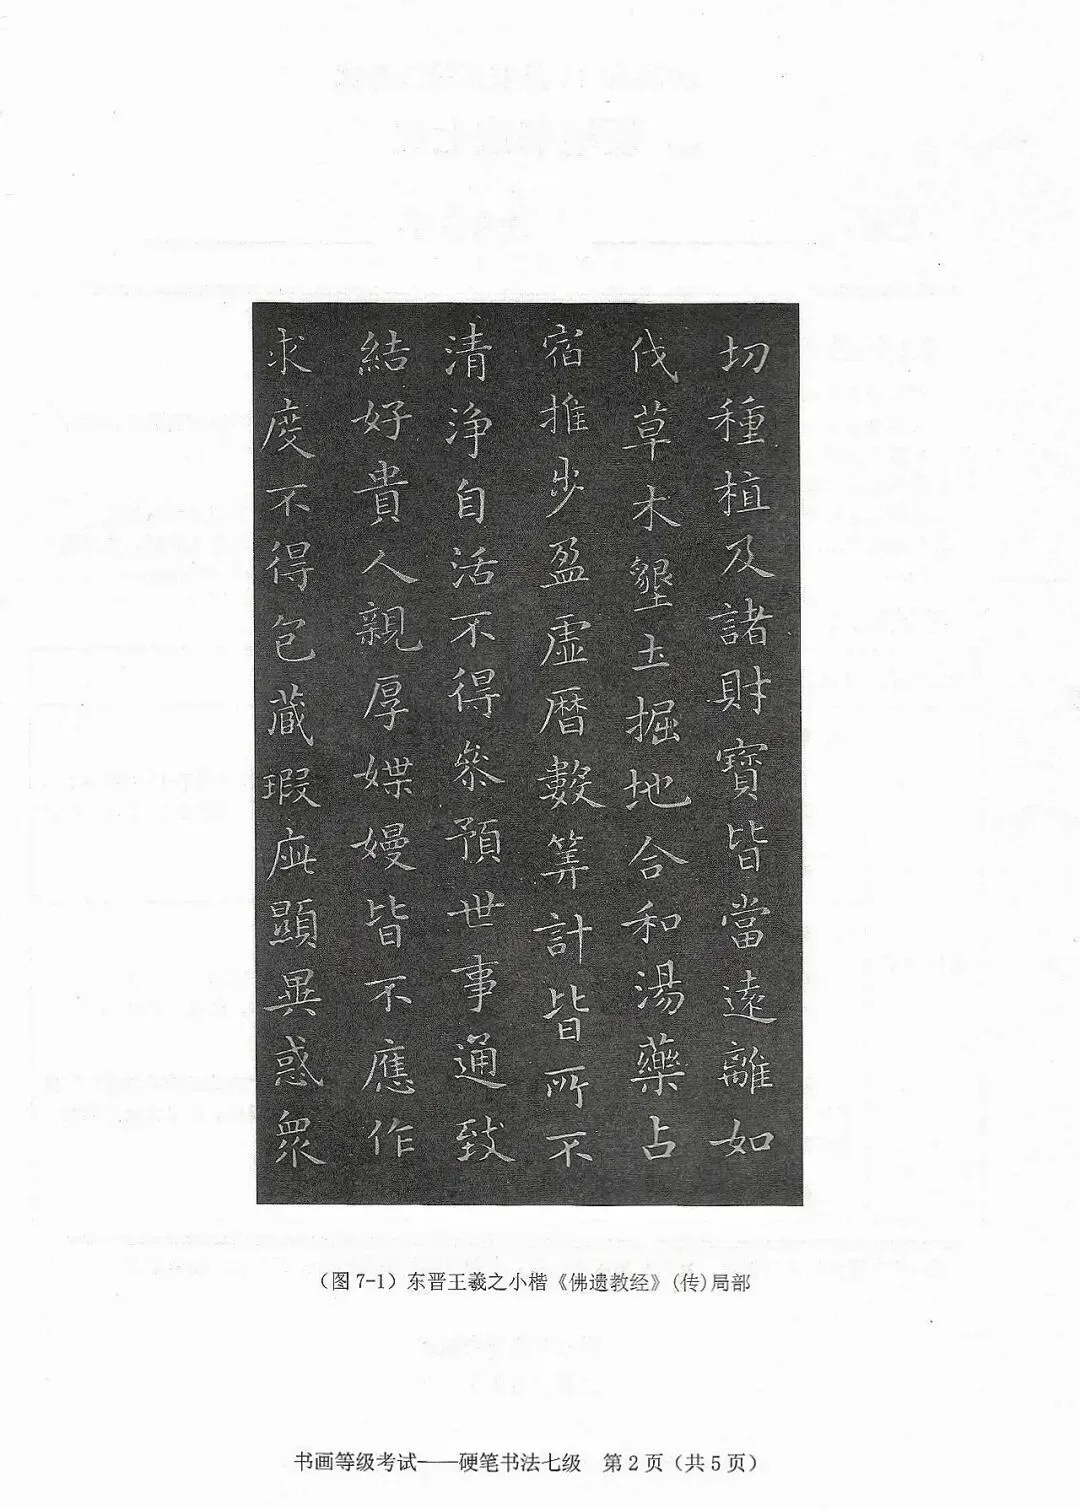 切種植及諸財寶皆當遠離如
伐草木墾土掘地合和湯藥占
宿推步盈虛曆數筭計皆所不
清淨自活不得叅預世事通致
結好貴人親厚媟嫚皆不應作
求度不得包藏瑕疵顯異惑衆
（图7-1）东晋王羲之小楷《佛遗教经》(传)局部
书画等级考试——硬笔书法七级 第2页（共5页）